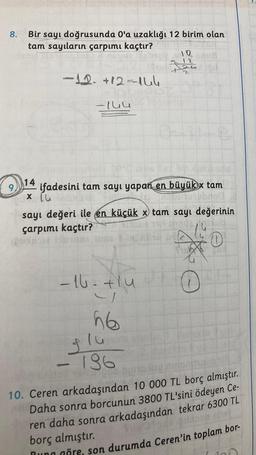 8. Bir sayı doğrusunda 0'a uzaklığı 12 birim olan
tam sayıların çarpımı kaçtır?
-12. +12=144
-144
9. 14/x ifadesini tam sayı yapan en büyük x tam
sayı değeri ile en küçük x tam sayı değerinin
çarpımı kaçtır?
-14. +14
- 196
10. Ceren arkadaşından 10 000 TL borç almıştır.
Daha sonra borcunun 3800 TL'sini ödeyen Ce-
ren daha sonra arkadaşından tekrar 6300 TL
borç almıştır.
göre, son durumda Ceren'in toplam bor-